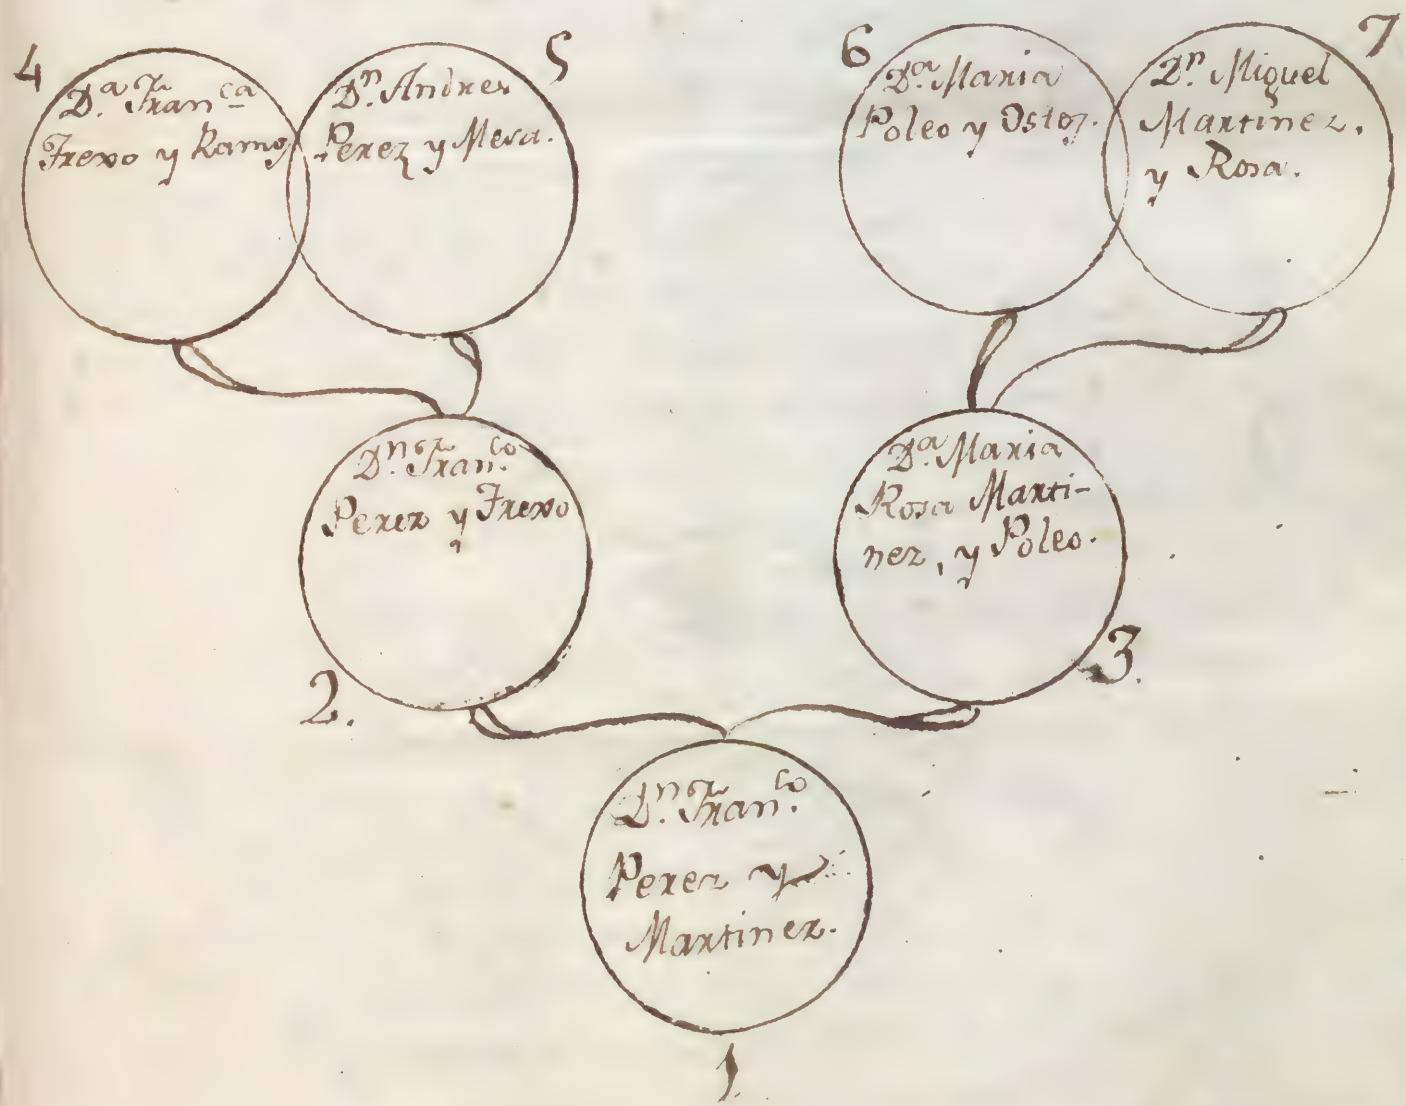 4
D.ª Fran.ca
Frexo y Ramos
5
D.n Andres
Perez y Mesa.
6
D.ª Maria
Poleo y
7
D.n Miguel
Martinez,
y Rosa.
D.n Fran.co
Perez y Frexo
2.
D.ª Maria
Rosa Marti-
nez, y Poleo.
3.
D.n Fran.co
Perez y
Martinez.
1.